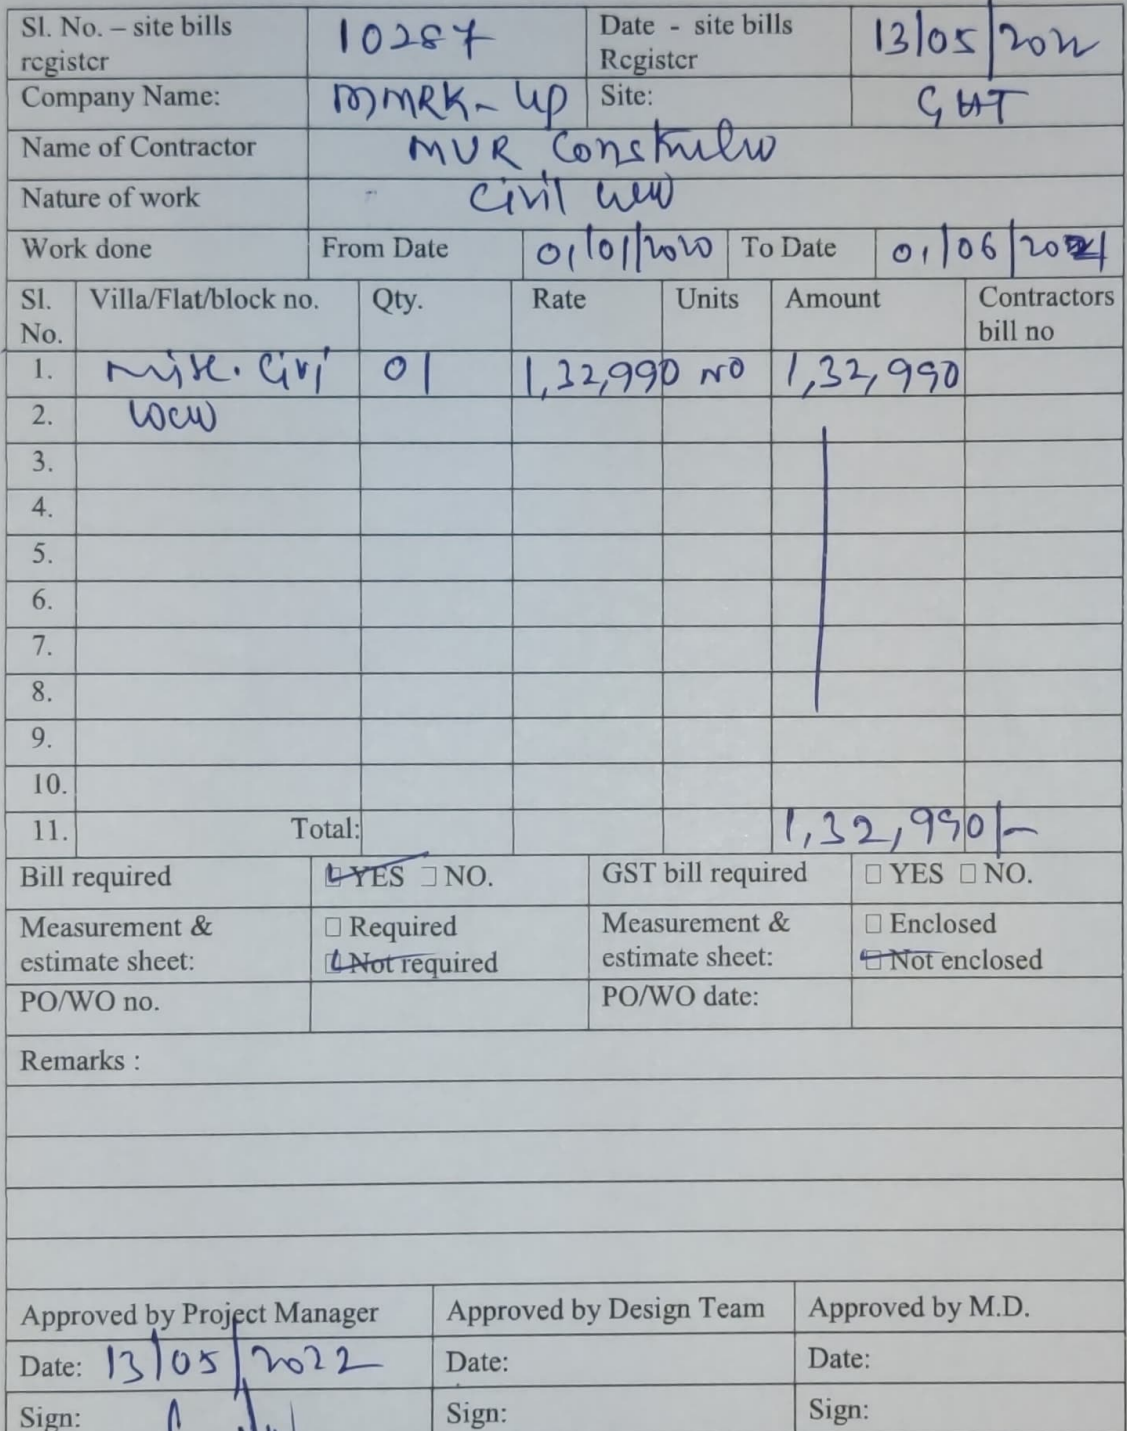 Sl. No. – site bills register 10287 Date - site bills Register 13/05/2022
Company Name: MMRK-UP Site: GHT
Name of Contractor MVR
Nature of work Civil
Work done From Date 01/01/2020 To Date 01/06/2021
Sl. No. Villa/Flat/block no. Qty. Rate Units Amount Contractors bill no
1. Misc. Civi 01 1,32,990 NO 1,32,990
2.
3.
4.
5.
6.
7.
8.
9.
10.
11. Total: 1,32,990/-
Bill required YES NO. GST bill required YES NO.
Measurement & estimate sheet: Required Not required Measurement & estimate sheet: Enclosed Not enclosed
PO/WO no. PO/WO date:
Remarks :
Approved by Project Manager Approved by Design Team Approved by M.D.
Date: 13/05/2022 Date: Date:
Sign: Sign: Sign: